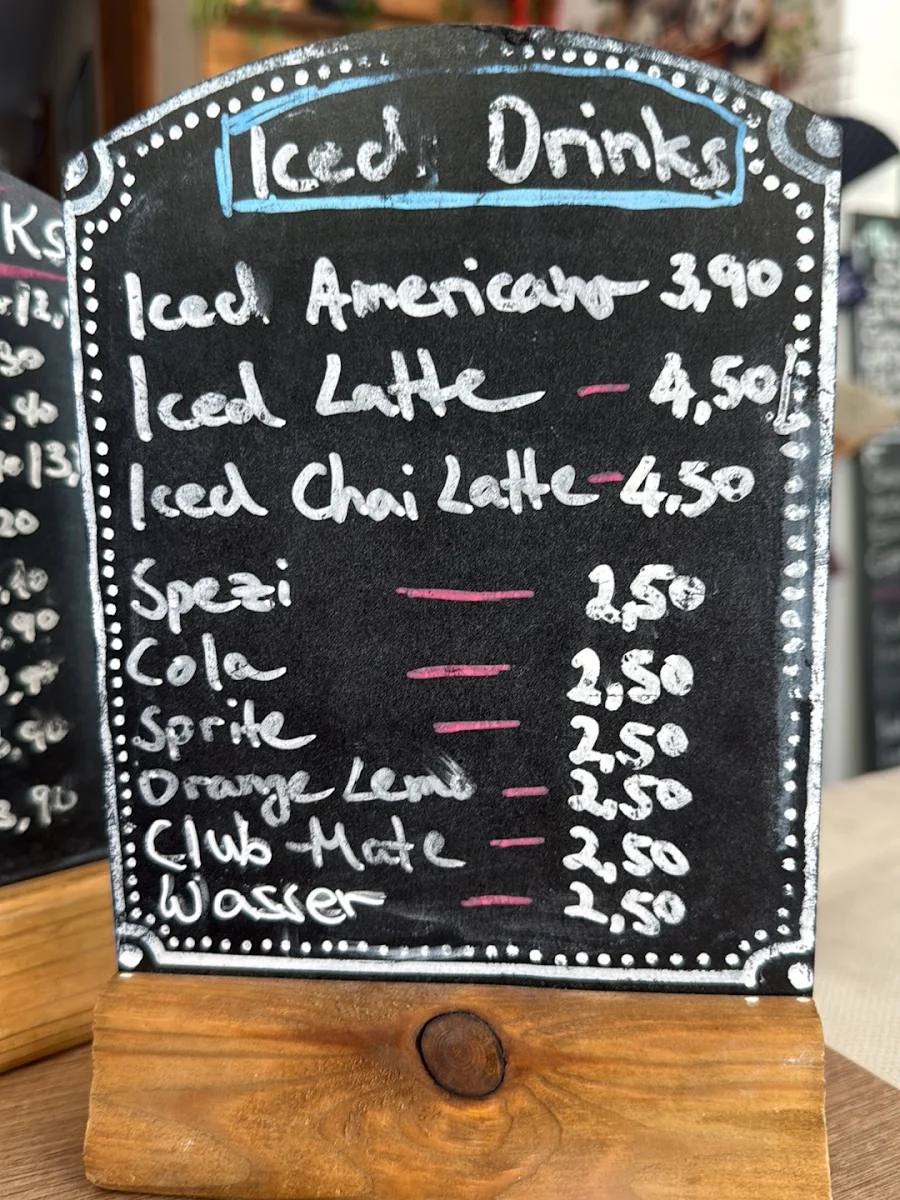 Iced Drinks
Iced Americano - 3,90
Iced Latte - 4,50
Iced Chai Latte - 4.50
Spezi — 2,50
Cola — 2,50
Sprite — 2,50
Orange Lemo - 2,50
Club-Mate - 2,50
Wasser - 2,50
Ks
30
,40
20
,90
,90
3,90